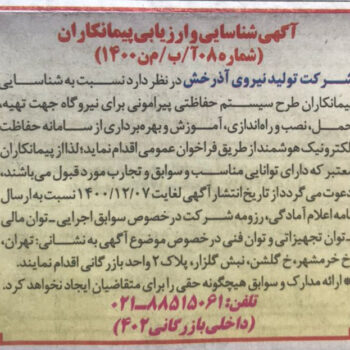 آگهی شناسایی و ارزیابی پیمانکاران
(شماره ۰۸آ/ب/من ۱۴۰۰)
شرکت تولید نیروی آذرخش در نظر دارد نسبت به شناسایی
پیمانکاران طرح سیستم حفاظتی پیرامونی برای نیروگاه جهت تهیه،
حمل، نصب و راه‌اندازی، آموزش و بهره‌برداری از سامانه حفاظت
الکترونیک هوشمند از طریق فراخوان عمومی اقدام نماید؛ لذا از پیمانکاران
معتبر که دارای توانایی مناسب و سوابق و تجارب مورد قبول می‌باشند،
دعوت می‌گردد از تاریخ انتشار آگهی لغایت ۱۴۰۰/۱۲/۰۷ نسبت به ارسال
نامه اعلام آمادگی، رزومه شرکت در خصوص سوابق اجرایی ـ توان مالی
ـ توان تجهیزاتی و توان فنی در خصوص موضوع آگهی به نشانی: تهران،
خ خرمشهر، خ گلشن، نبش گلزار، پلاک ۲ واحد بازرگانی اقدام نمایند.
* ارائه مدارک و سوابق هیچگونه حقی را برای متقاضیان ایجاد نخواهد کرد.
تلفن: ۸۸۵۱۵۰۶۱-۰۲۱
(داخلی بازرگانی ۴۰۲)